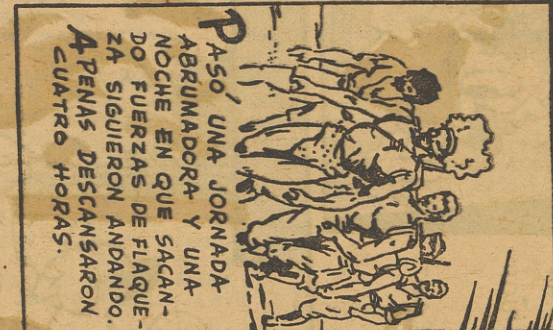 PASÓ UNA JORNADA
ABRUMADORA Y UNA
NOCHE EN QUE SACAN-
DO FUERZAS DE FLAQUE-
ZA SIGUIERON ANDANDO.
APENAS DESCANSARON
CUATRO HORAS.